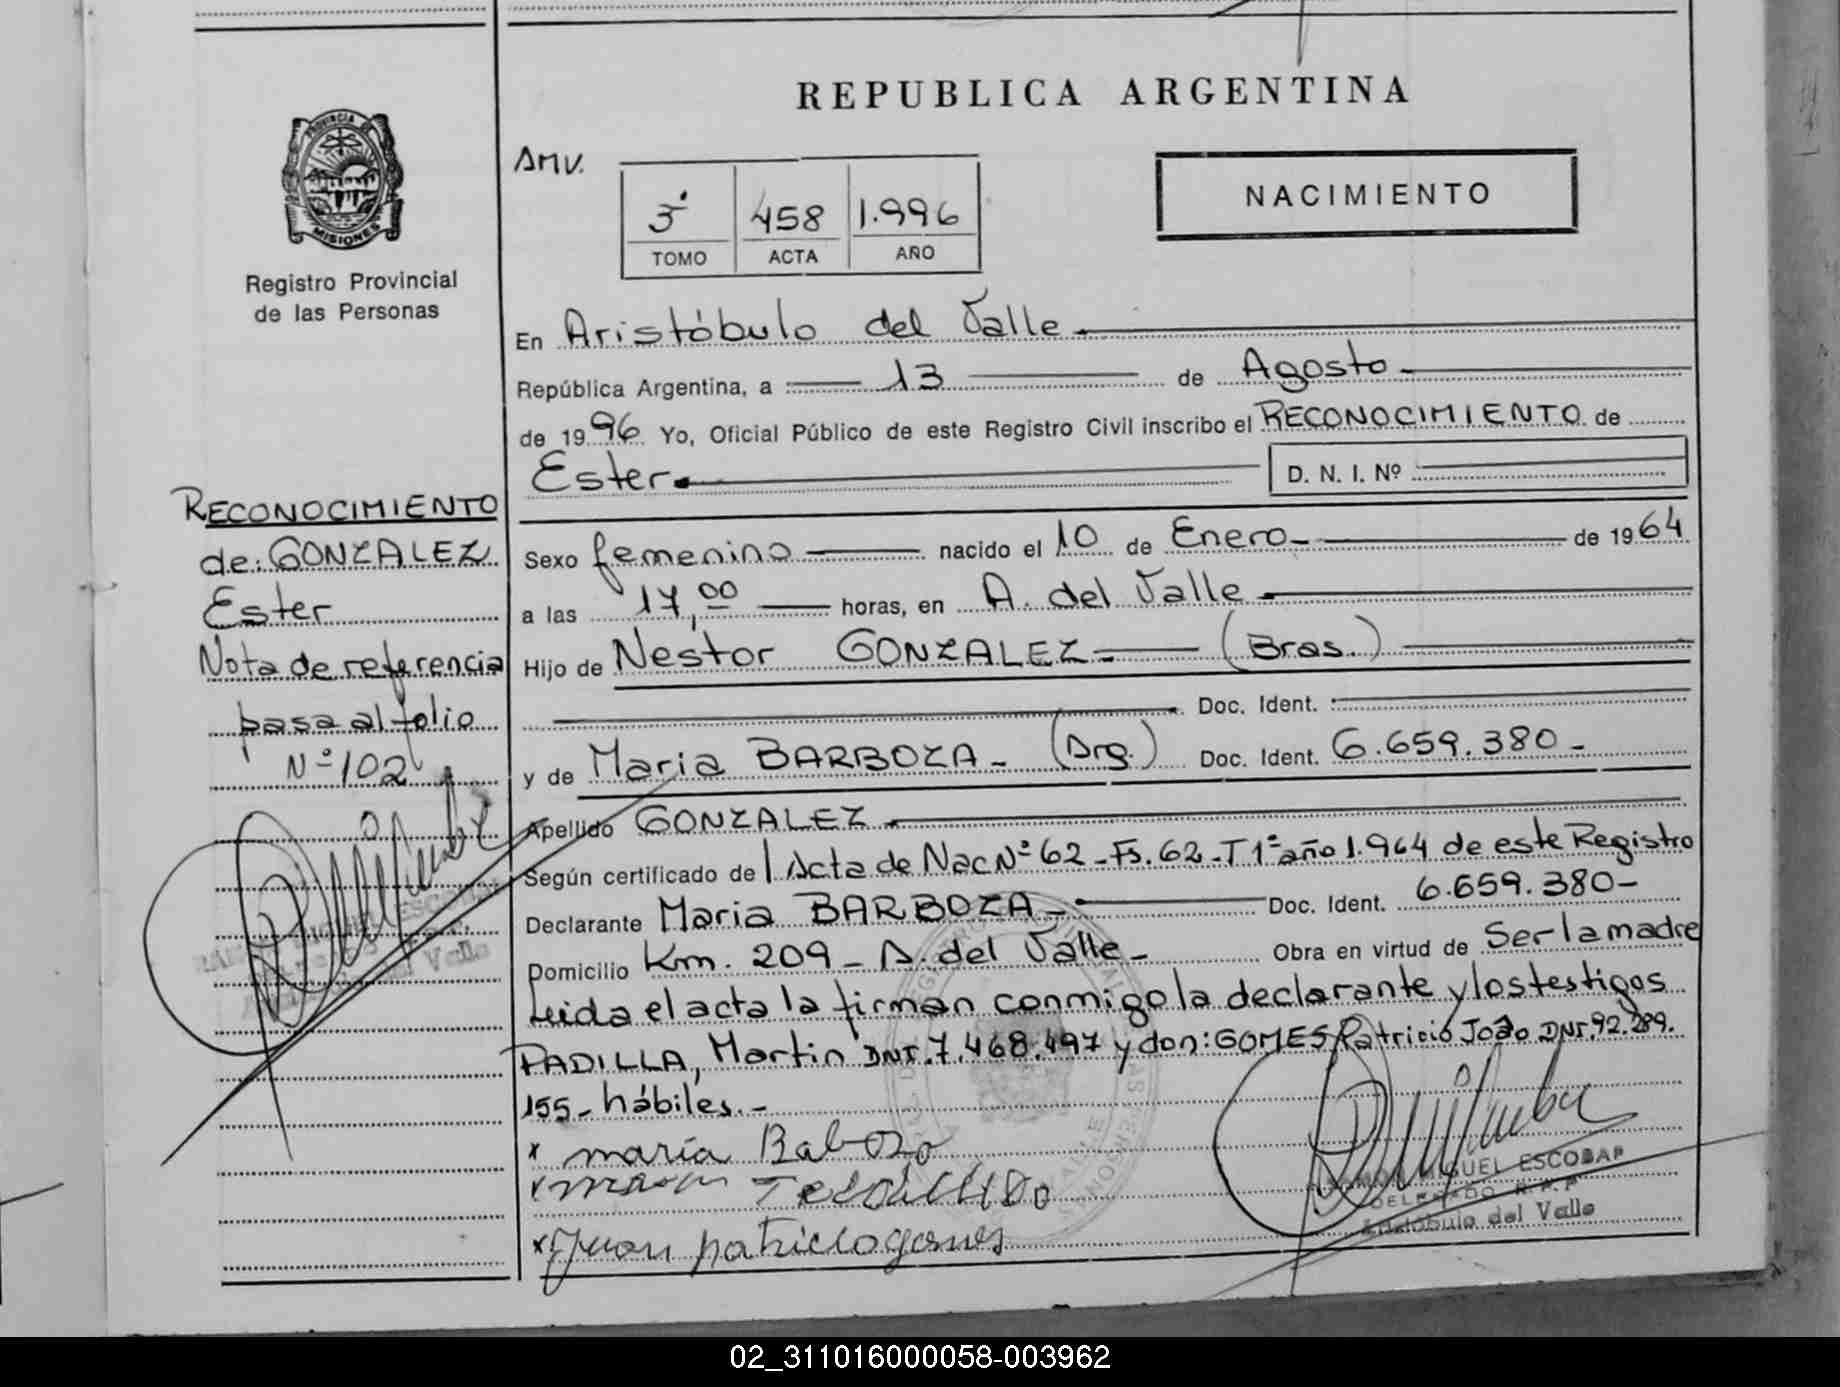 REPUBLICA ARGENTINA
PROVINCIA DE
MISIONES
Registro Provincial
de las Personas
AMV.
3° 458 1.996
TOMO ACTA AÑO
NACIMIENTO
En Aristóbulo del Valle.
República Argentina, a 13 de Agosto
de 1996 Yo, Oficial Público de este Registro Civil inscribo el RECONOCIMIENTO de
Ester D. N. I. Nº
Sexo femenino nacido el 10 de Enero de 1964
a las 17,00 horas, en A. del Valle
Hijo de Nestor GONZALEZ (Bras.)
Doc. Ident.
y de Maria BARBOZA - (Arg.) Doc. Ident. 6.659.380 -
Apellido GONZALEZ
Según certificado de Acta de Nac Nº 62 - Fs. 62 - T 1º año 1.964 de este Registro
Declarante Maria BARBOZA - Doc. Ident. 6.659.380 -
Domicilio Km. 209 - A. del Valle - Obra en virtud de Ser la madre
Leida el acta la firman conmigo la declarante y los testigos
PADILLA, Martin DNI. 7.468.497 y don: GOMES Patricio João DNI. 92.289.
155 - hábiles. -
x maria Babosa
x
x Juan patricio gomes
RAMON MIGUEL ESCOBAR
DELEGADO R.P.P.
Aristóbulo del Valle
RECONOCIMIENTO
de: GONZALEZ
Ester
Nota de referencia
pasa al folio
Nº 102
02_311016000058-003962